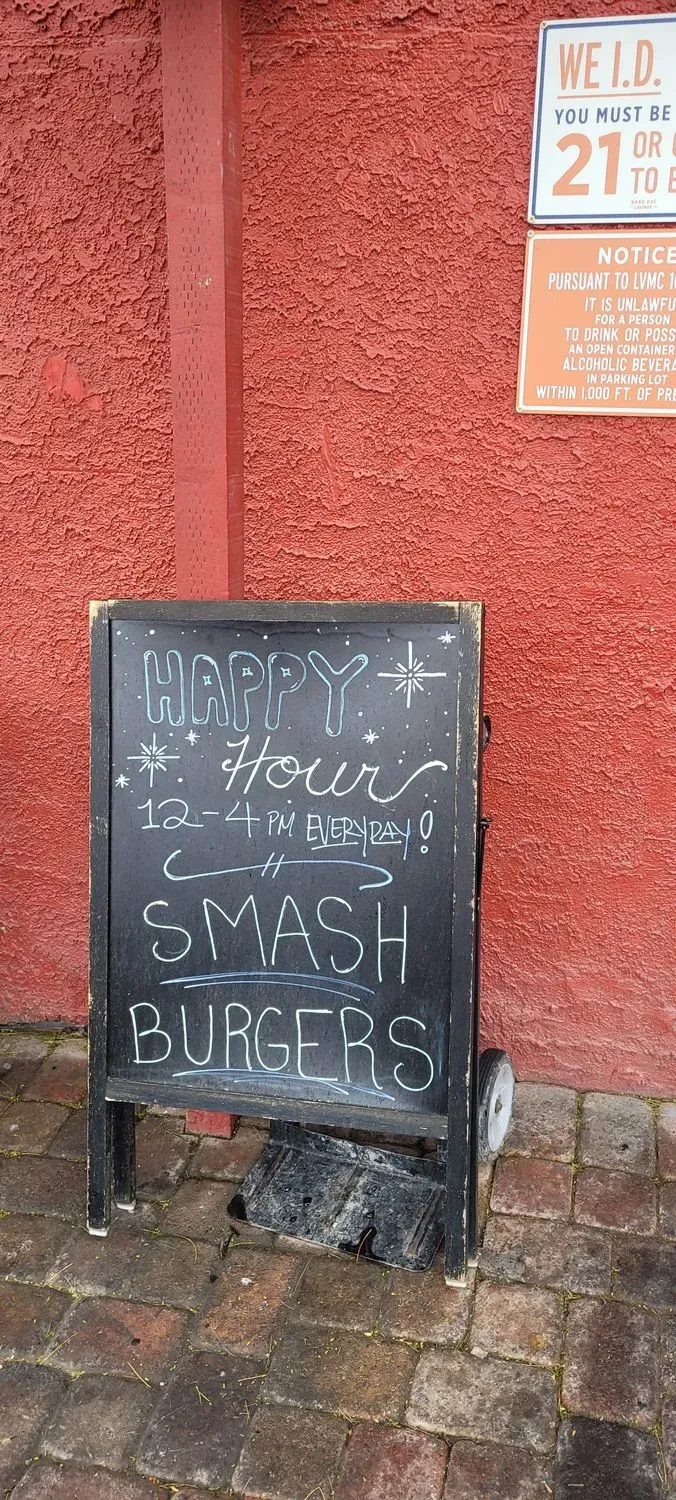 WE I.D.
YOU MUST BE
21 OR
TO
NOTICE
PURSUANT TO LVMC
IT IS UNLAWFU
FOR A PERSON
TO DRINK OR POSS
AN OPEN CONTAINER
ALCOHOLIC BEVERA
IN PARKING LOT
WITHIN 1,000 FT. OF PRE
HAPPY
Hour
12-4 PM EVERYDAY!
SMASH
BURGERS